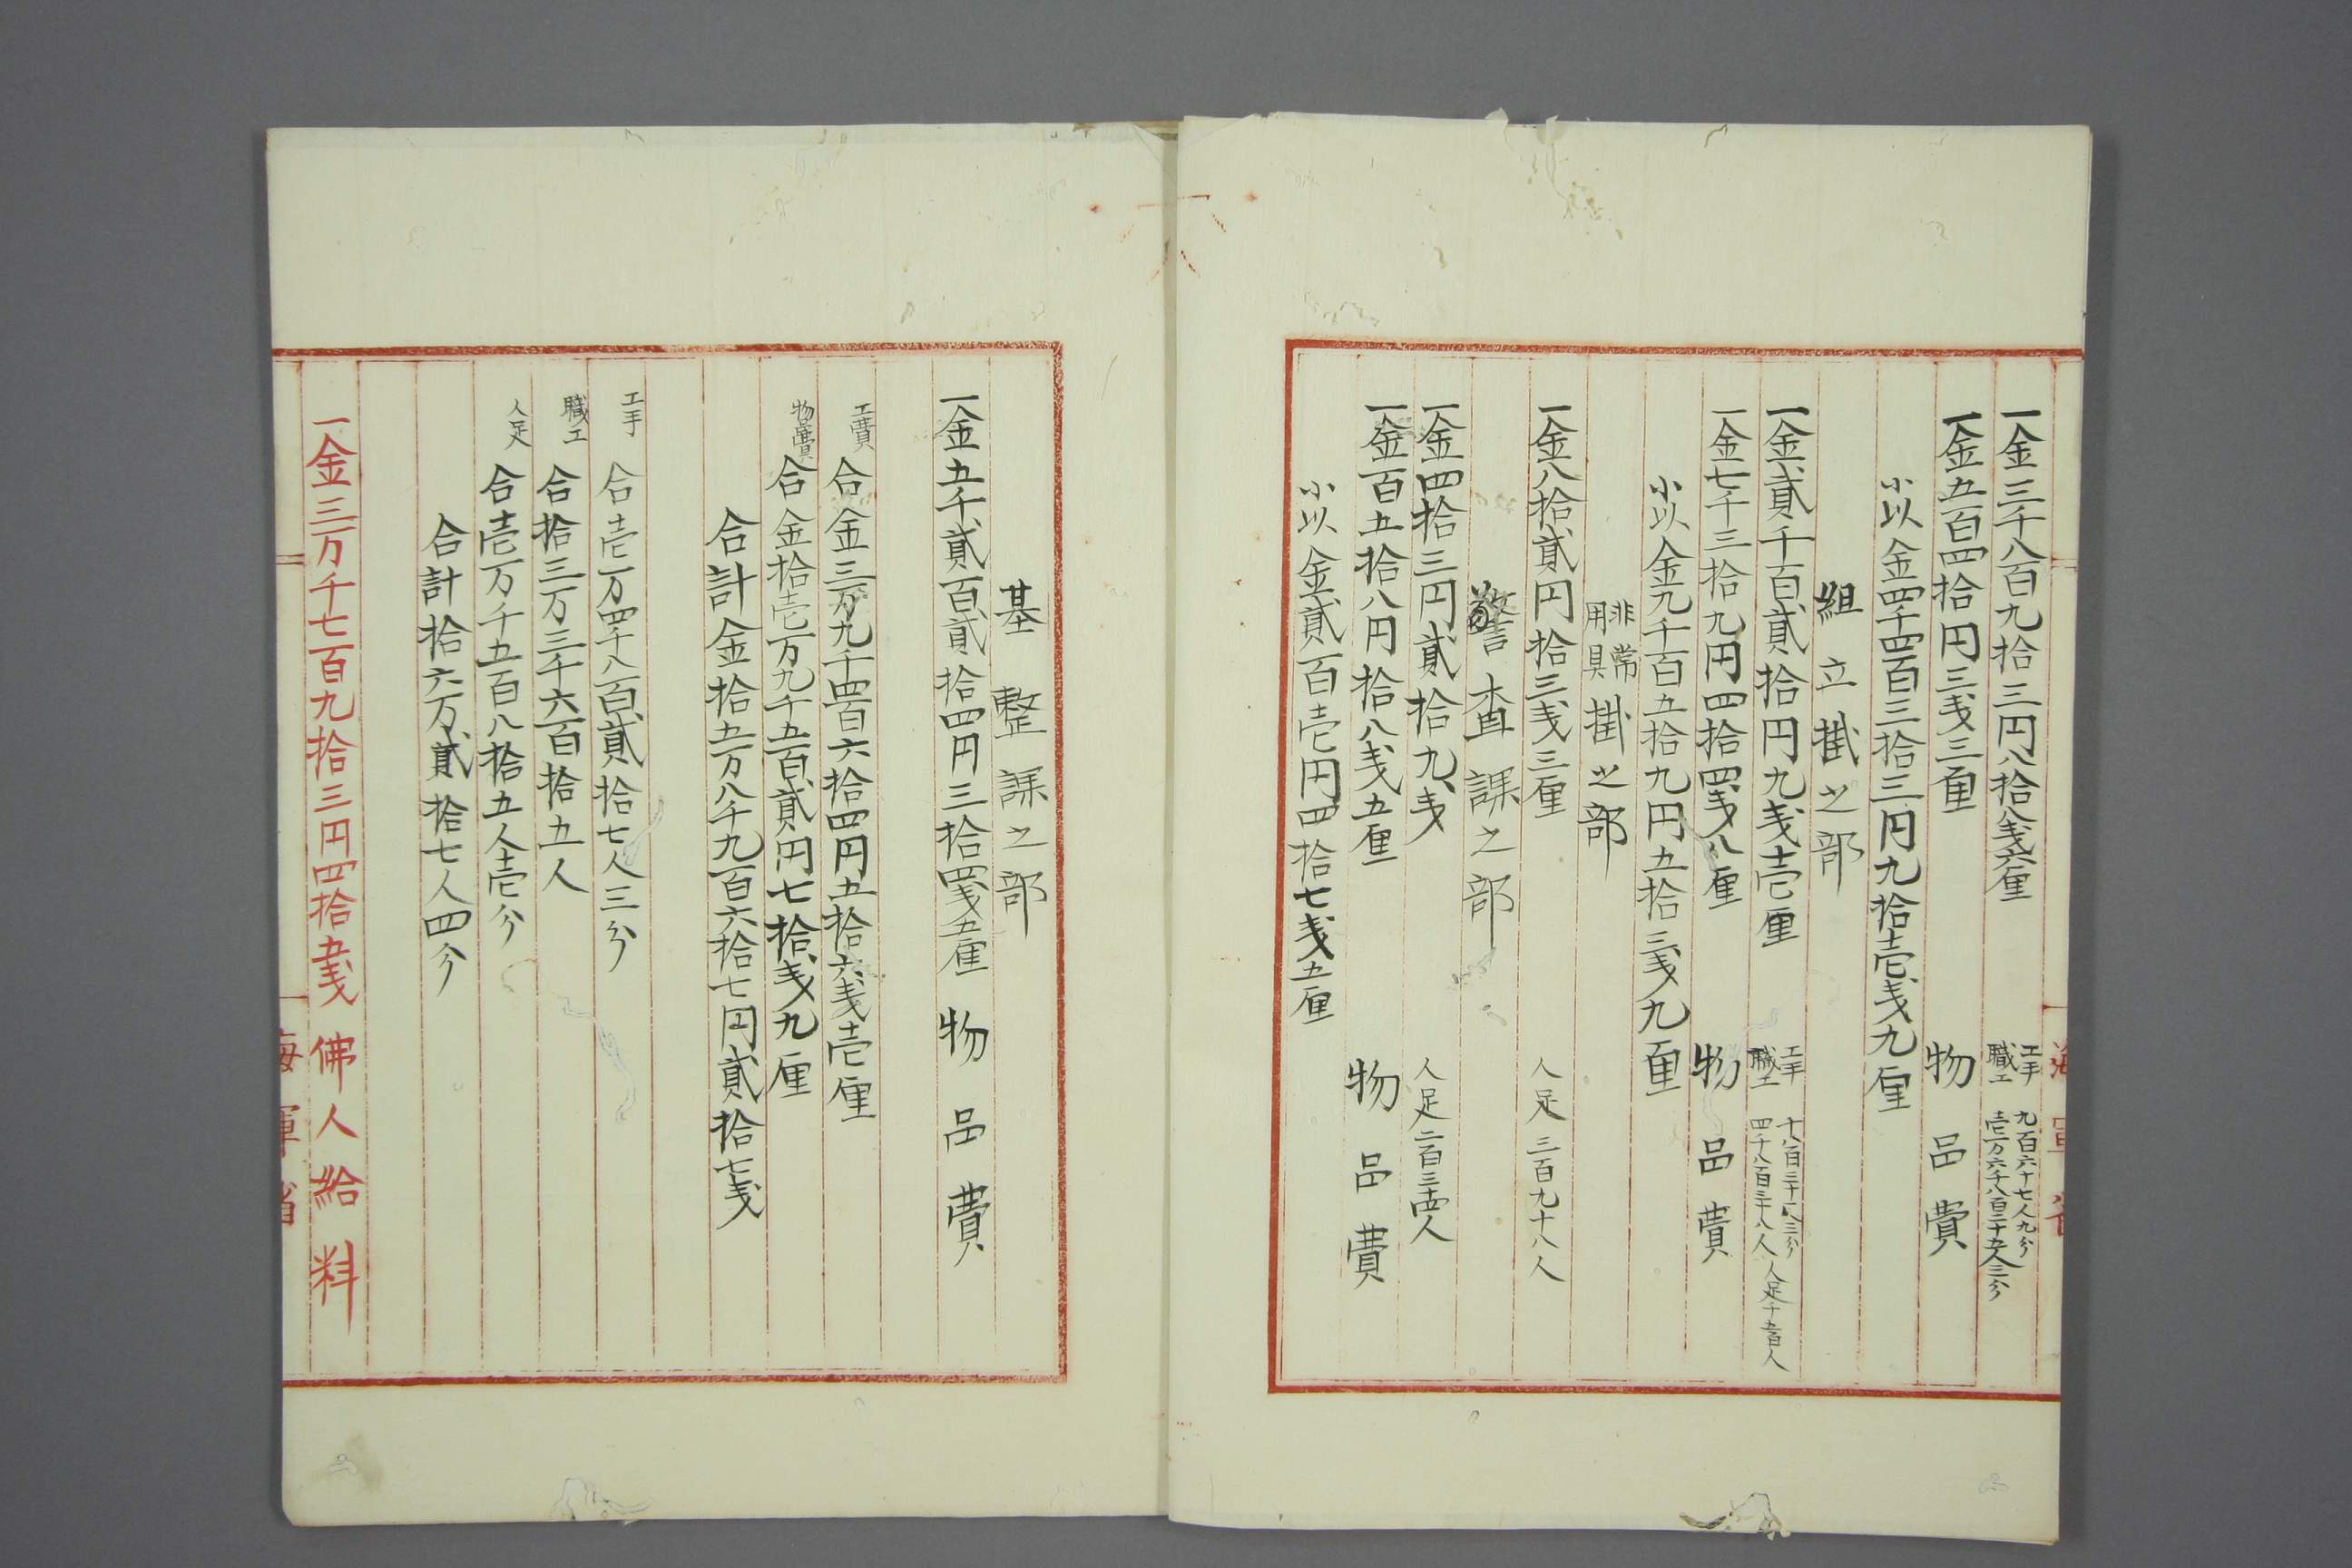 海軍省
一金三千八百九拾三円八拾八戔六厘 工手 九百六十七人九分
職工 壱万六千八百二十五人三分
一金五百四拾円三戔三厘 物品費
小以金四千四百三拾三円九拾壱戔九厘
組立掛之部
一金貳千百貳拾円九戔壱厘 工手 千八百三十二人三分
職工 四千八百三十八人 人足千五百人
一金七千三拾九円四拾四戔八厘 物品費
小以金九千百五拾九円五拾三戔九厘
非常用具掛之部
一金八拾貳円拾三戔三厘 人足三百九十八人
警査課之部
一金四拾三円貳拾九戔 人足二百三十四人
一金百五拾八円拾八戔五厘 物品費
小以金貳百壱円四拾七戔五厘
基整課之部
一金五千貳百貳拾四円三拾四戔五厘 物品費
工費 合金三万九千四百六拾四円五拾六戔壱厘
物品費 合金拾壱万九千五百貳円七拾戔九厘
合計金拾五万八千九百六拾七円貳拾七戔
工手 合壱万四千八百貳拾七人三分
職工 合拾三万三千六百拾五人
人足 合壱万千五百八拾五人壱分
合計拾六万貳拾七人四分
一金三万千七百九拾三円四拾五戔 佛人給料
海軍省